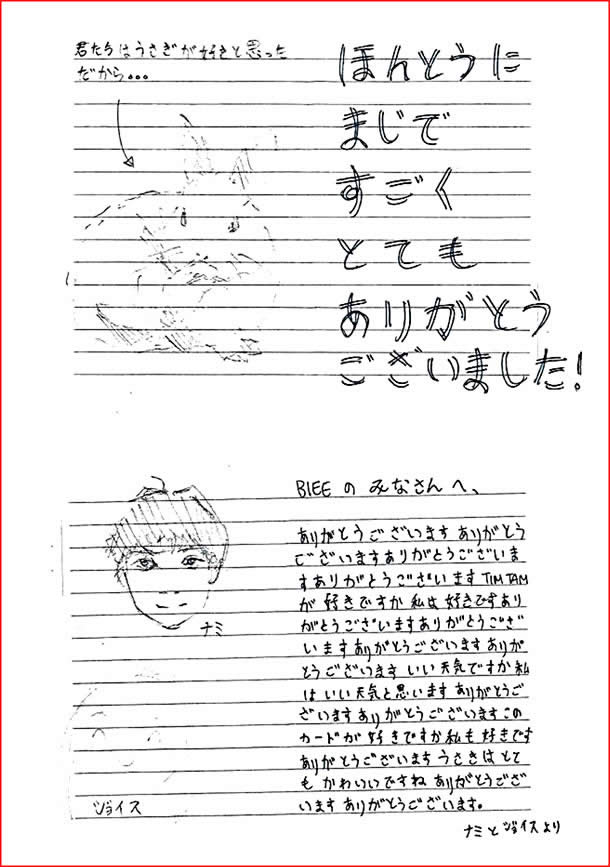 君たちはうさぎが好きと思った
だから...
ほんとうに
まじで
すごく
とても
ありがとう
ございました!
BIEE の みなさんへ、
ありがとうございます ありがとう
ございますありがとうございま
すありがとうございます TIM TAM
が 好きですか 私は 好きですあり
がとうございますありがとうござ
います ありがとうございます ありが
とうございます いい 天気ですか 私
は いい 天気と思います ありがとうご
ざいます ありがとうございます この
カードが 好きですか 私も 好きです
ありがとうございます うさきは とて
も かわいいですね ありがとうござ
います ありがとうございます。
ナミ
ジョイス
ナミと ジョイスより